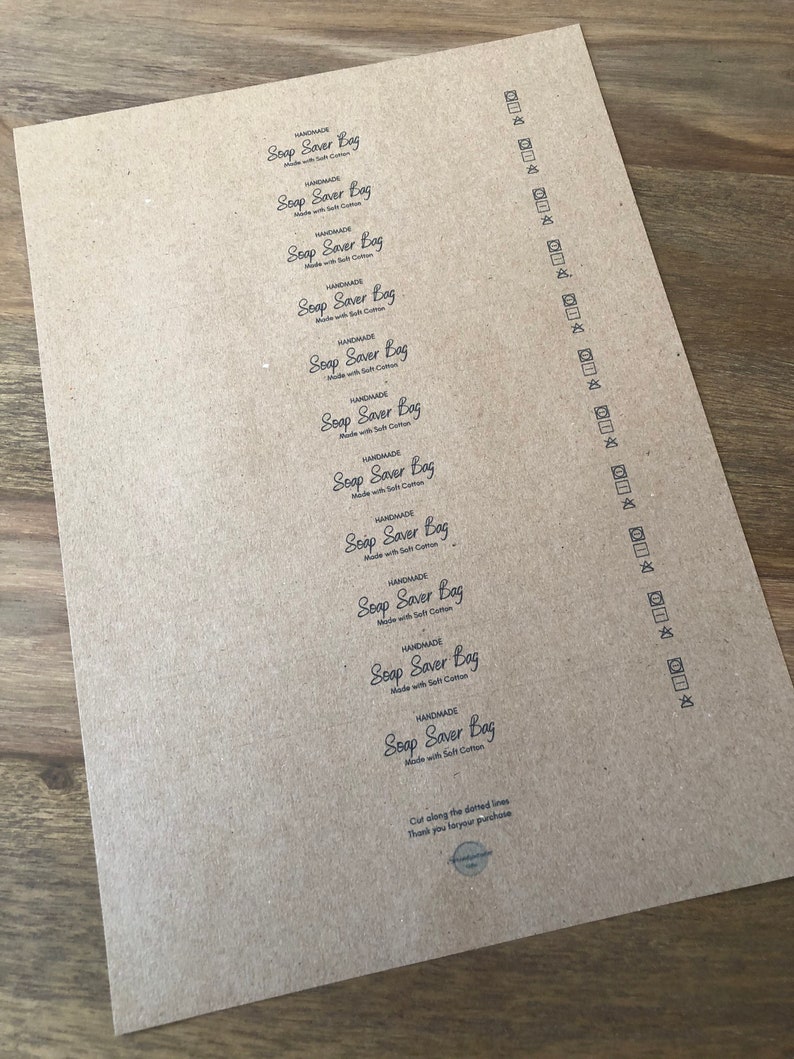 HANDMADE
Soap Saver Bag
Made with Soft Cotton
HANDMADE
Soap Saver Bag
Made with Soft Cotton
HANDMADE
Soap Saver Bag
Made with Soft Cotton
HANDMADE
Soap Saver Bag
Made with Soft Cotton
HANDMADE
Soap Saver Bag
Made with Soft Cotton
HANDMADE
Soap Saver Bag
Made with Soft Cotton
HANDMADE
Soap Saver Bag
Made with Soft Cotton
HANDMADE
Soap Saver Bag
Made with Soft Cotton
HANDMADE
Soap Saver Bag
Made with Soft Cotton
HANDMADE
Soap Saver Bag
Made with Soft Cotton
HANDMADE
Soap Saver Bag
Made with Soft Cotton
Cut along the dotted lines
Thank you foryour purchase